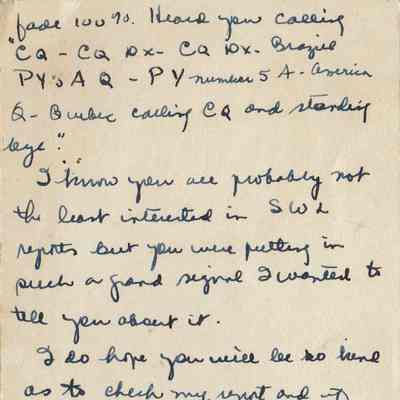 fade 100%. Heard you calling
"CQ - CQ DX - CQ DX - Brazil
PY5AQ - PY number 5 A - America
Q - Quebec calling CQ and standing
bye."
I know you are probably not
the least interested in SWL
reports but you were putting in
such a grand signal I wanted to
tell you about it.
I do hope you will be so kind
as to check my report and if